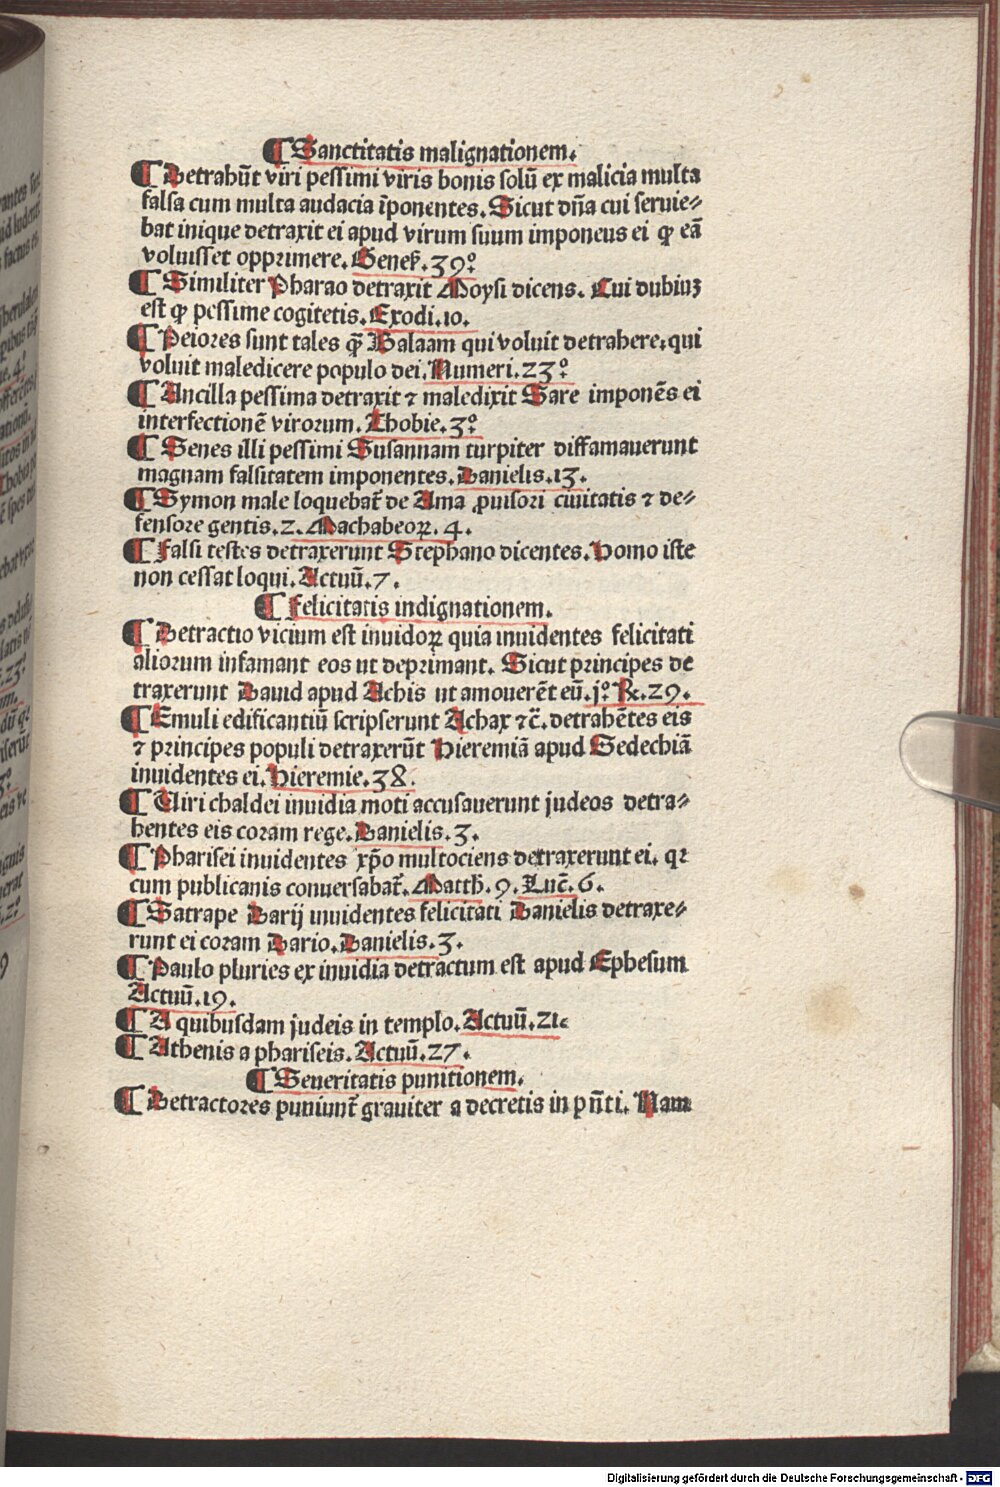 ¶ Sanctitatis malignationem.
¶ Detrahūt viri pessimi viris bonis solū ex malicia multa
falsa cum multa audacia īponentes. Sicut dn̄a cui seruie⸗
bat inique detraxit ei apud virum suum imponeus ei ꝙ eā
voluisset opprimere. Genes̄. 39.°
¶ Similiter Pharao detraxit Moysi dicens. Cui dubiuȝ
est ꝙ pessime cogitetis. Exodi. 10.
¶ Peiores sunt tales q̄ȝ Balaam qui voluit detrahere, qui
voluit maledicere populo dei. Numeri. 23.°
¶ Ancilla pessima detraxit ⁊ maledixit Sare imponēs ei
interfectionē virorum. Thobie. 3.°
¶ Senes illi pessimi Susannam turpiter diffamauerunt
magnam falsitatem imponentes. Danielis. 13.
¶ Symon male loquebat̄ de Alma ꝓuisori ciuitatis ⁊ de⸗
fensore gentis. 2. Machabeoꝝ. 4.
¶ Falsi testes detraxerunt Stephano dicentes. Homo iste
non cessat loqui. Actuū. 7.
¶ Felicitatis indignationem.
¶ Detractio vicium est inuidoꝝ quia inuidentes felicitati
aliorum infamant eos ut deprimant. Sicut principes de
traxerunt Dauid apud Achis ut amouerēt eū. j.° R̄. 29.
¶ Emuli edificantiū scripserunt Achax ⁊c̄. detrahētes eis
⁊ principes populi detraxerūt Hieremiā apud Sedechiā
inuidentes ei. Hieremie. 38.
¶ Uiri chaldei inuidia moti accusauerunt judeos detra⸗
hentes eis coram rege. Danielis. 3.
¶ Pharisei inuidentes xp̄o multociens detraxerunt ei. qꝛ
cum publicanis conuersabat̄. Matth̄. 9. Luc̄. 6.
¶ Satrape Darij inuidentes felicitati Danielis detraxe⸗
runt ei coram Dario. Danielis. 3.
¶ Paulo pluries ex inuidia detractum est apud Ephesum
Actuū. 19.
¶ A quibusdam judeis in templo. Actuū. 21.
¶ Athenis a phariseis. Actuū. 27.
¶ Seueritatis punitionem.
¶ Detractores puniunt̄ grauiter a decretis in pn̄ti. Nam
Digitalisierung gefördert durch die Deutsche Forschungsgemeinschaft - DFG